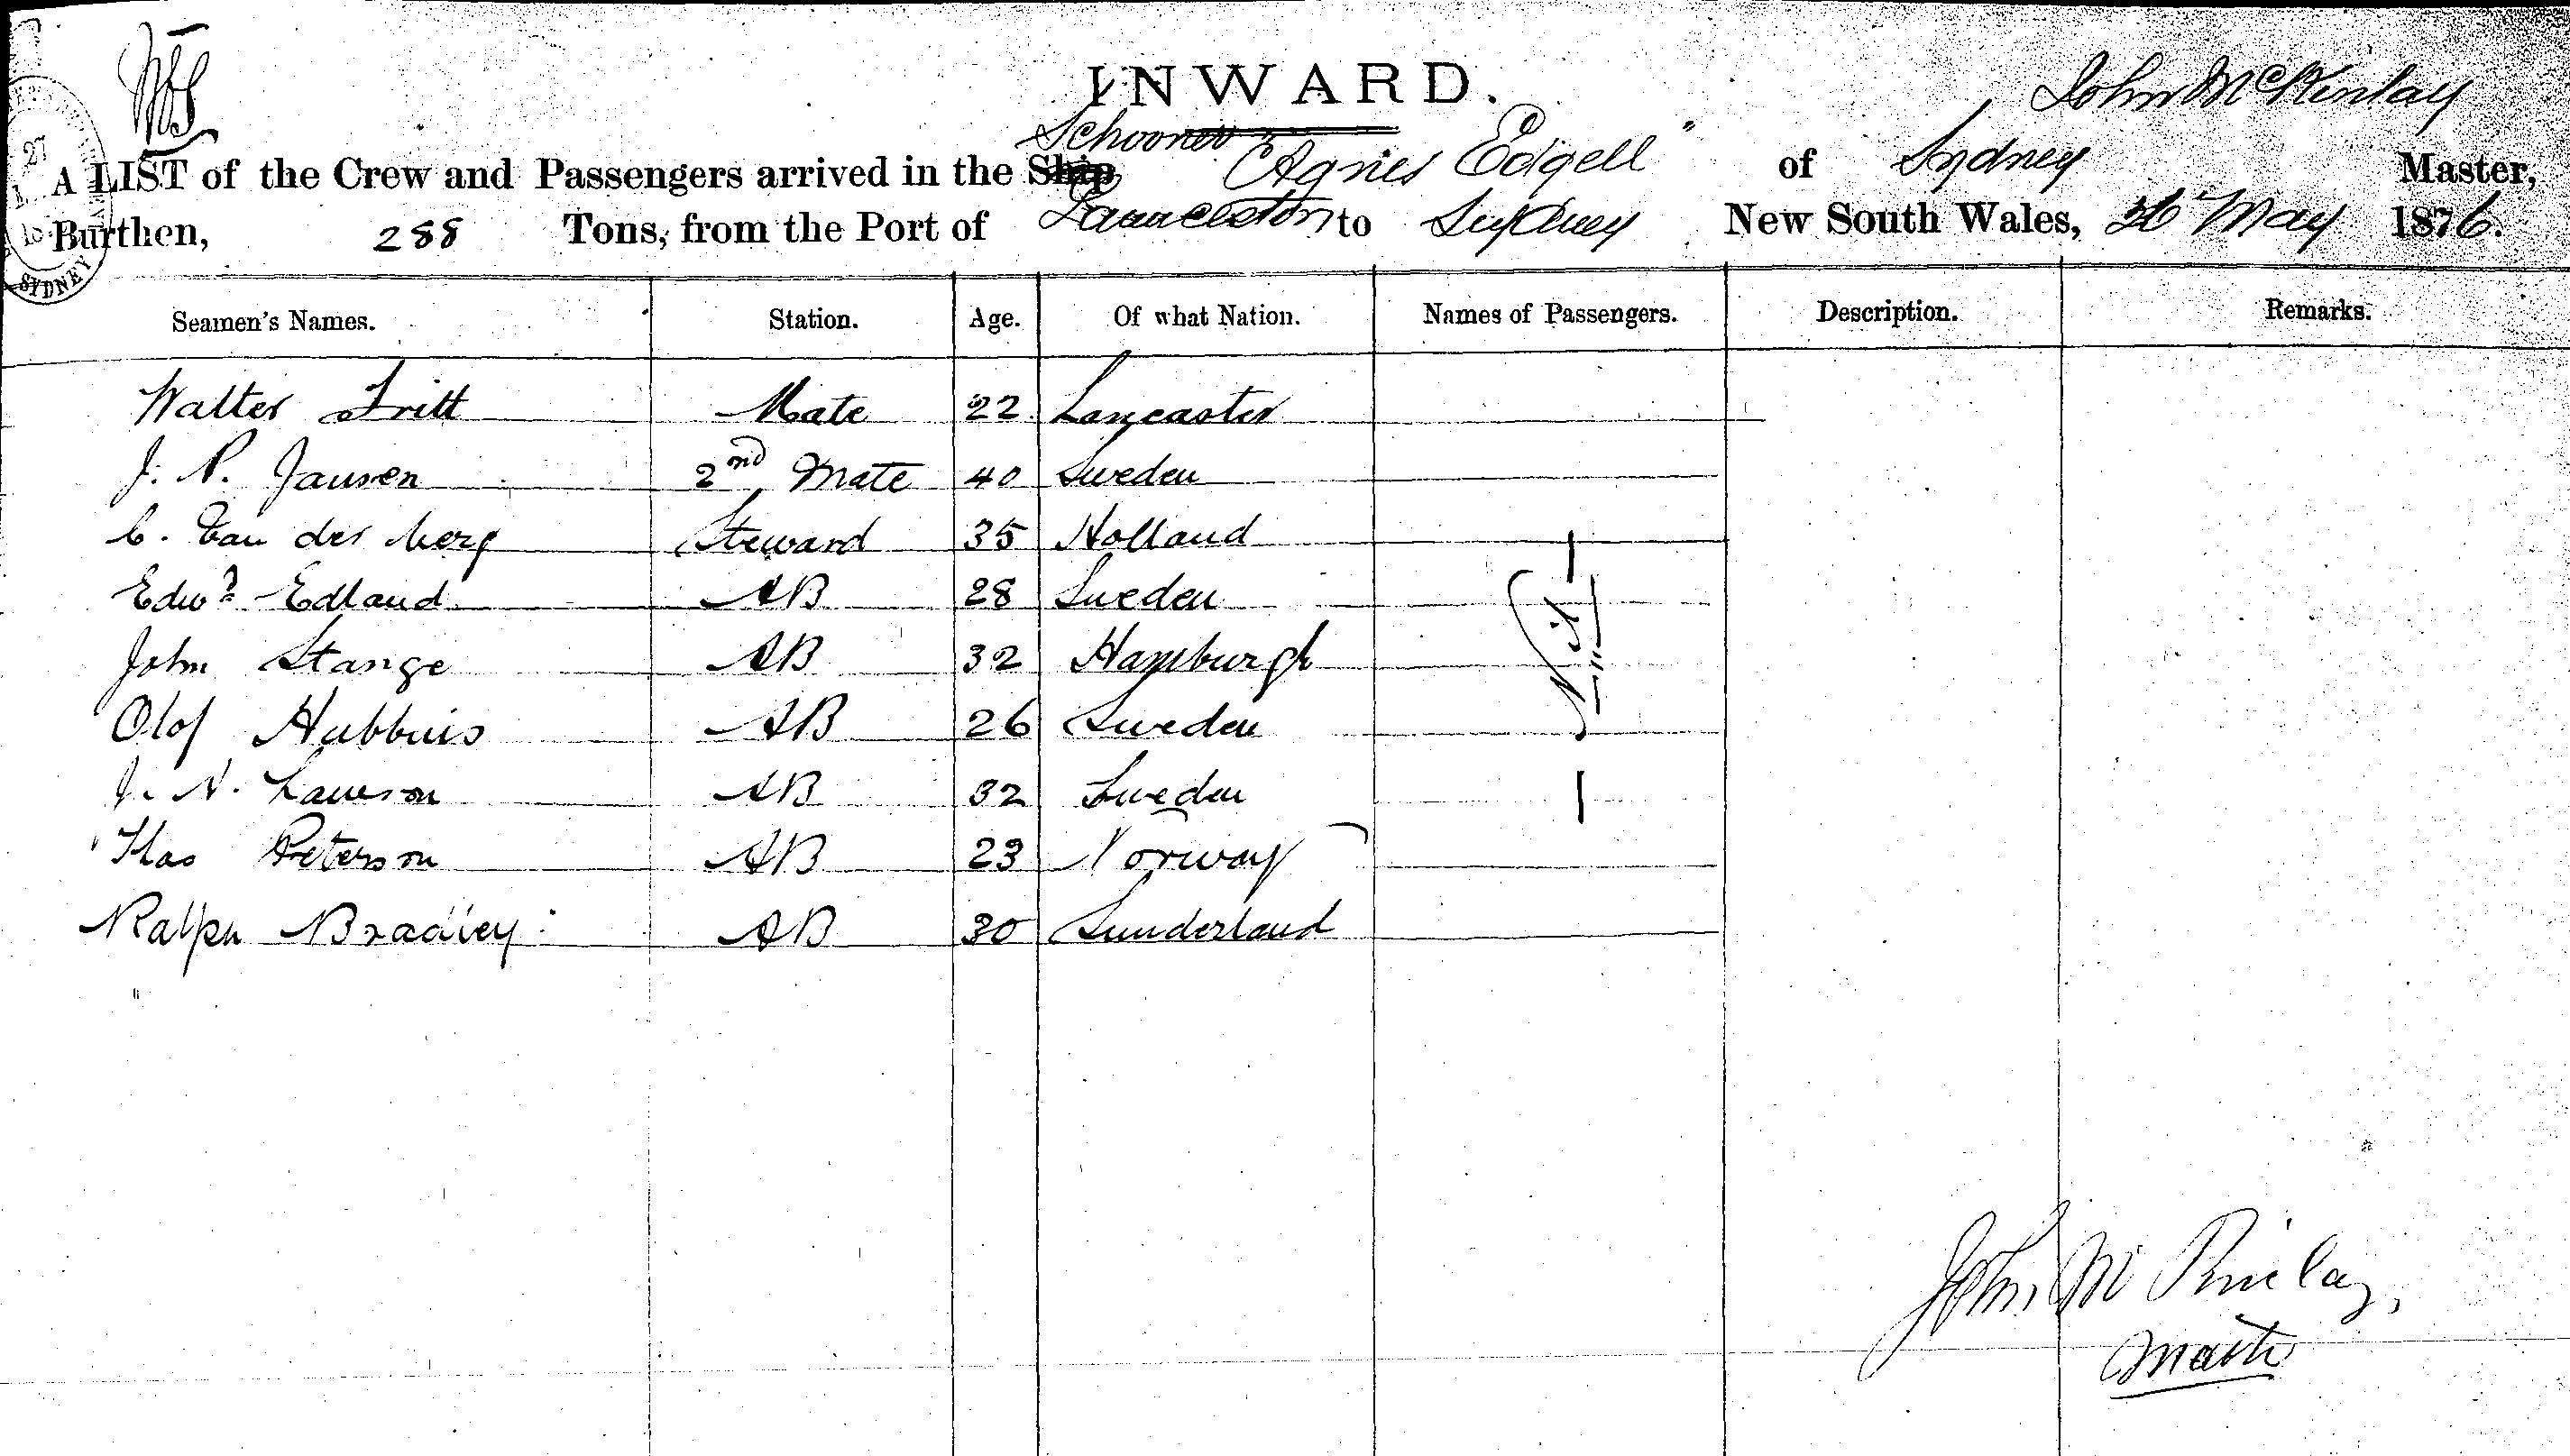 INWARD.
John McKinlay
Schooner "Agnes Edgell" of Sydney
A LIST of the Crew and Passengers arrived in the Ship Master,
Burthen, 288 Tons, from the Port of Launceston to Sydney New South Wales, May 1876.
27
SYDNEY
Seamen's Names. Station. Age. Of what Nation. Names of Passengers. Description. Remarks.
Walter Mate 22 Lancaster
J. P. Jansen 2nd Mate 40 Sweden
C. Van der Merg Steward 35 Holland
Edwd Edland AB 28 Sweden
John Stange AB 32 Hamburgh
Olof AB 26 Sweden
J. N. Lawson AB 32 Sweden
Thos Peterson AB 23 Norway
Ralph Bradley AB 30 Sunderland
Nil
John McKinlay,
Master